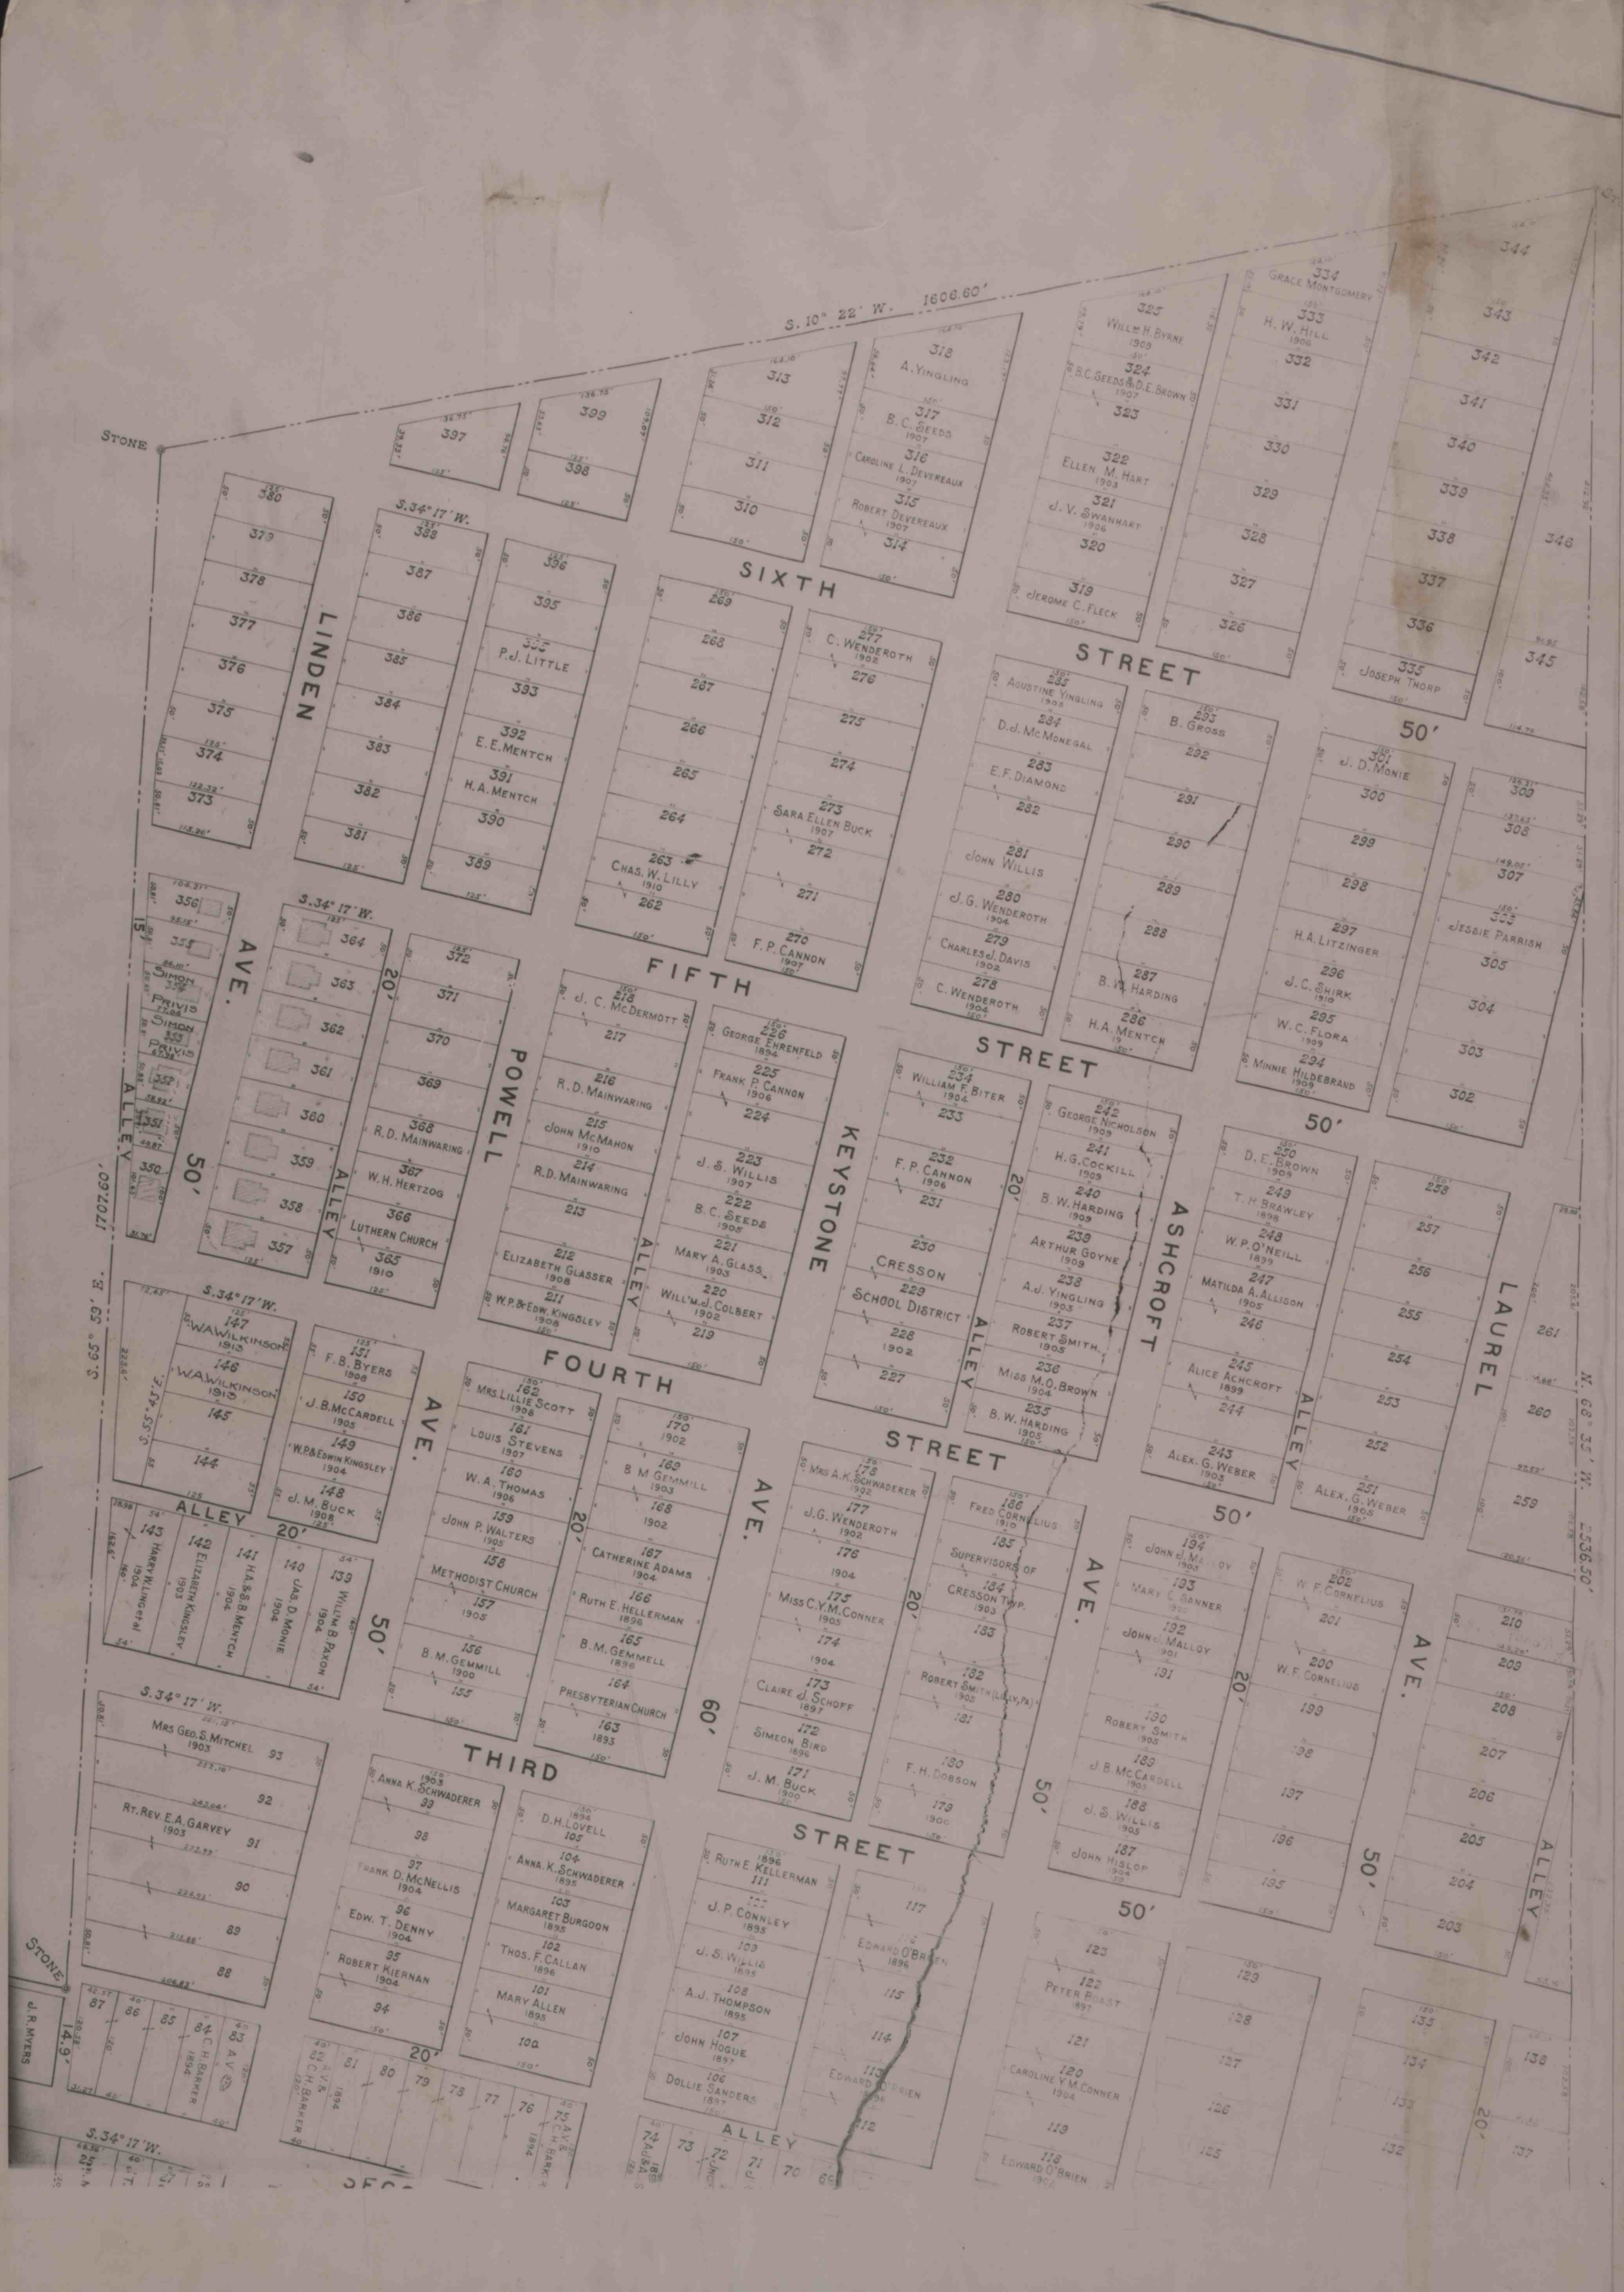 S. 10° 22' W. 1606.60'
STONE
344
334
GRACE MONTGOMERY
343
333
H. W. HILL
1906
342
332
341
331
340
330
339
329
338
328
337
327
336
326
335
JOSEPH THORP
346
345
325
WILL'M H. BYRNE
1909
324
B.C. SEEDS & D.E. BROWN
1907
323
322
ELLEN M. HART
1903
321
J. V. SWANHART
1906
320
319
JEROME C. FLECK
318
A. YINGLING
317
B. C. SEEDS
1907
316
CAROLINE L. DEVEREAUX
1907
315
ROBERT DEVEREAUX
1907
314
313
312
311
310
399
398
397
SIXTH STREET 50'
380
379
378
377
376
375
374
373
LINDEN AVE. 50'
S. 34° 17' W.
388
387
386
385
384
383
382
381
396
395
P. J. LITTLE
393
392
E. E. MENTCH
391
H. A. MENTCH
390
389
269
268
267
266
265
264
263
CHAS. W. LILLY
1910
262
277
C. WENDEROTH
1902
276
275
274
273
SARA ELLEN BUCK
1907
272
271
270
F. P. CANNON
1907
285
AGUSTINE YINGLING
1903
284
D. J. MCMONEGAL
283
E. F. DIAMOND
282
281
JOHN WILLIS
280
J. G. WENDEROTH
1904
279
CHARLES J. DAVIS
1902
278
C. WENDEROTH
1904
293
B. GROSS
292
291
290
289
288
287
B. W. HARDING
286
H. A. MENTCH
301
J. D. MONIE
300
299
298
297
H. A. LITZINGER
296
J. C. SHIRK
1910
295
W. C. FLORA
1909
294
MINNIE HILDEBRAND
1909
309
308
307
JESSIE PARRISH
305
304
303
302
FIFTH STREET 50'
356
355
SIMON
PRIVIS
SIMON
353
PRIVIS
352
351
350
15' ALLEY
S. 34° 17' W.
364
363
362
361
360
359
358
357
20' ALLEY
372
371
370
369
368
R. D. MAINWARING
367
W. H. HERTZOG
366
LUTHERN CHURCH
365
1910
POWELL AVE. 50'
218
J. C. MCDERMOTT
217
216
R. D. MAINWARING
215
JOHN MCMAHON
1910
214
R. D. MAINWARING
213
212
ELIZABETH GLASSER
1908
211
W. P. & EDW. KINGSLEY
1908
ALLEY 20'
226
GEORGE EHRENFELD
1894
225
FRANK P. CANNON
1906
224
223
J. S. WILLIS
1907
222
B. C. SEEDS
1905
221
MARY A. GLASS
1903
220
WILL'M. J. COLBERT
1902
219
KEYSTONE AVE. 60'
234
WILLIAM F. BITER
1904
233
232
F. P. CANNON
1906
231
230
CRESSON
229
SCHOOL DISTRICT
228
1902
227
20' ALLEY 20'
242
GEORGE NICHOLSON
1909
241
H. G. COCKILL
1909
240
B. W. HARDING
1909
239
ARTHUR GOYNE
1909
238
A. J. YINGLING
1903
237
ROBERT SMITH
1905
236
MISS M. O. BROWN
1904
235
B. W. HARDING
1905
ASHCROFT AVE. 50'
250
D. E. BROWN
1909
249
T. H. BRAWLEY
1898
248
W. P. O'NEILL
1899
247
MATILDA A. ALLISON
1905
246
245
ALICE ACHCROFT
1899
244
243
ALEX. G. WEBER
1903
ALLEY 20'
258
257
256
255
254
253
252
251
ALEX. G. WEBER
1905
LAUREL AVE. 50'
261
260
259
S. 65° 59' E. 1707.60'
N. 68° 35' W. 2536.50'
FOURTH STREET 50'
S. 34° 17' W.
S. 55° 43' E.
147
W. A. WILKINSON
1913
146
W. A. WILKINSON
1913
145
144
151
F. B. BYERS
1908
150
J. B. MCCARDELL
1905
149
W. P. & EDWIN KINGSLEY
1904
148
J. M. BUCK
1908
ALLEY 20'
143 HARRY W. LINGER et al 1904
142 ELIZABETH KINGSLEY 1903
141 H. A. & S. B. MENTCH 1904
140 JAS. D. MONIE 1904
139 WILL'M B. PAXON 1904
162
MRS. LILLIE SCOTT
1908
161
LOUIS STEVENS
1907
160
W. A. THOMAS
1906
159
JOHN P. WALTERS
1905
158
METHODIST CHURCH
157
1905
156
B. M. GEMMILL
1900
155
170
1902
169
B M GEMMILL
1903
168
1902
167
CATHERINE ADAMS
1904
166
RUTH E. HELLERMAN
1896
165
B. M. GEMMELL
1896
164
PRESBYTERIAN CHURCH
163
1893
178
MRS A. K. SCHWADERER
1902
177
J. G. WENDEROTH
1902
176
1904
175
MISS C. Y. M. CONNER
1905
174
1904
173
CLAIRE J. SCHOFF
1897
172
SIMEON BIRD
1896
171
J. M. BUCK
1900
186
FRED CORNELIUS
1910
185
SUPERVISORS OF
184
CRESSON TWP.
1903
183
182
ROBERT SMITH (LILLY, PA)
1905
181
180
F. H. DOBSON
179
1900
194
JOHN J. MALLOY
1903
193
MARY C. SANNER
192
JOHN J. MALLOY
1901
191
190
ROBERT SMITH
1905
189
J. B. MCCARDELL
1905
188
J. S. WILLIS
1905
187
JOHN HISLOP
1904
202
W. F. CORNELIUS
201
200
W. F. CORNELIUS
199
198
197
196
195
210
209
208
207
206
205
204
203
ALLEY 20'
THIRD STREET 50'
S. 34° 17' W.
MRS GEO. S. MITCHEL 93
1903
92
RT. REV. E. A. GARVEY 91
1903
90
89
88
1903
ANNA K. SCHWADERER
99
98
97
FRANK D. MCNELLIS
1904
96
EDW. T. DENNY
1904
95
ROBERT KIERNAN
1904
94
1894
D. H. LOVELL
105
104
ANNA. K. SCHWADERER
1895
103
MARGARET BURGOON
1895
102
THOS. F. CALLAN
1896
101
MARY ALLEN
1895
100
1896
RUTH E. KELLERMAN
111
J. P. CONNLEY
1895
109
J. S. WILLIS
1895
108
A. J. THOMPSON
1895
107
JOHN HOGUE
1897
106
DOLLIE SANDERS
1897
117
EDWARD O'BRIEN
1896
115
114
113
EDWARD O'BRIEN
112
123
122
PETER ROAST
1897
121
120
CAROLINE Y. M. CONNER
1904
119
118
EDWARD O'BRIEN
1902
129
128
127
126
125
135
134
133
132
136
137
STONE
J. R. MYERS
14.9'
87
86
85
84 C. H. BARKER 1894
83 A. V.
20'
82 A. V. & C. H. BARKER 1894
81
80
79
78
77
76
75 A. V. & C. H. BARK
1894
ALLEY
74
73
72
71
70
S. 34° 17' W.
25